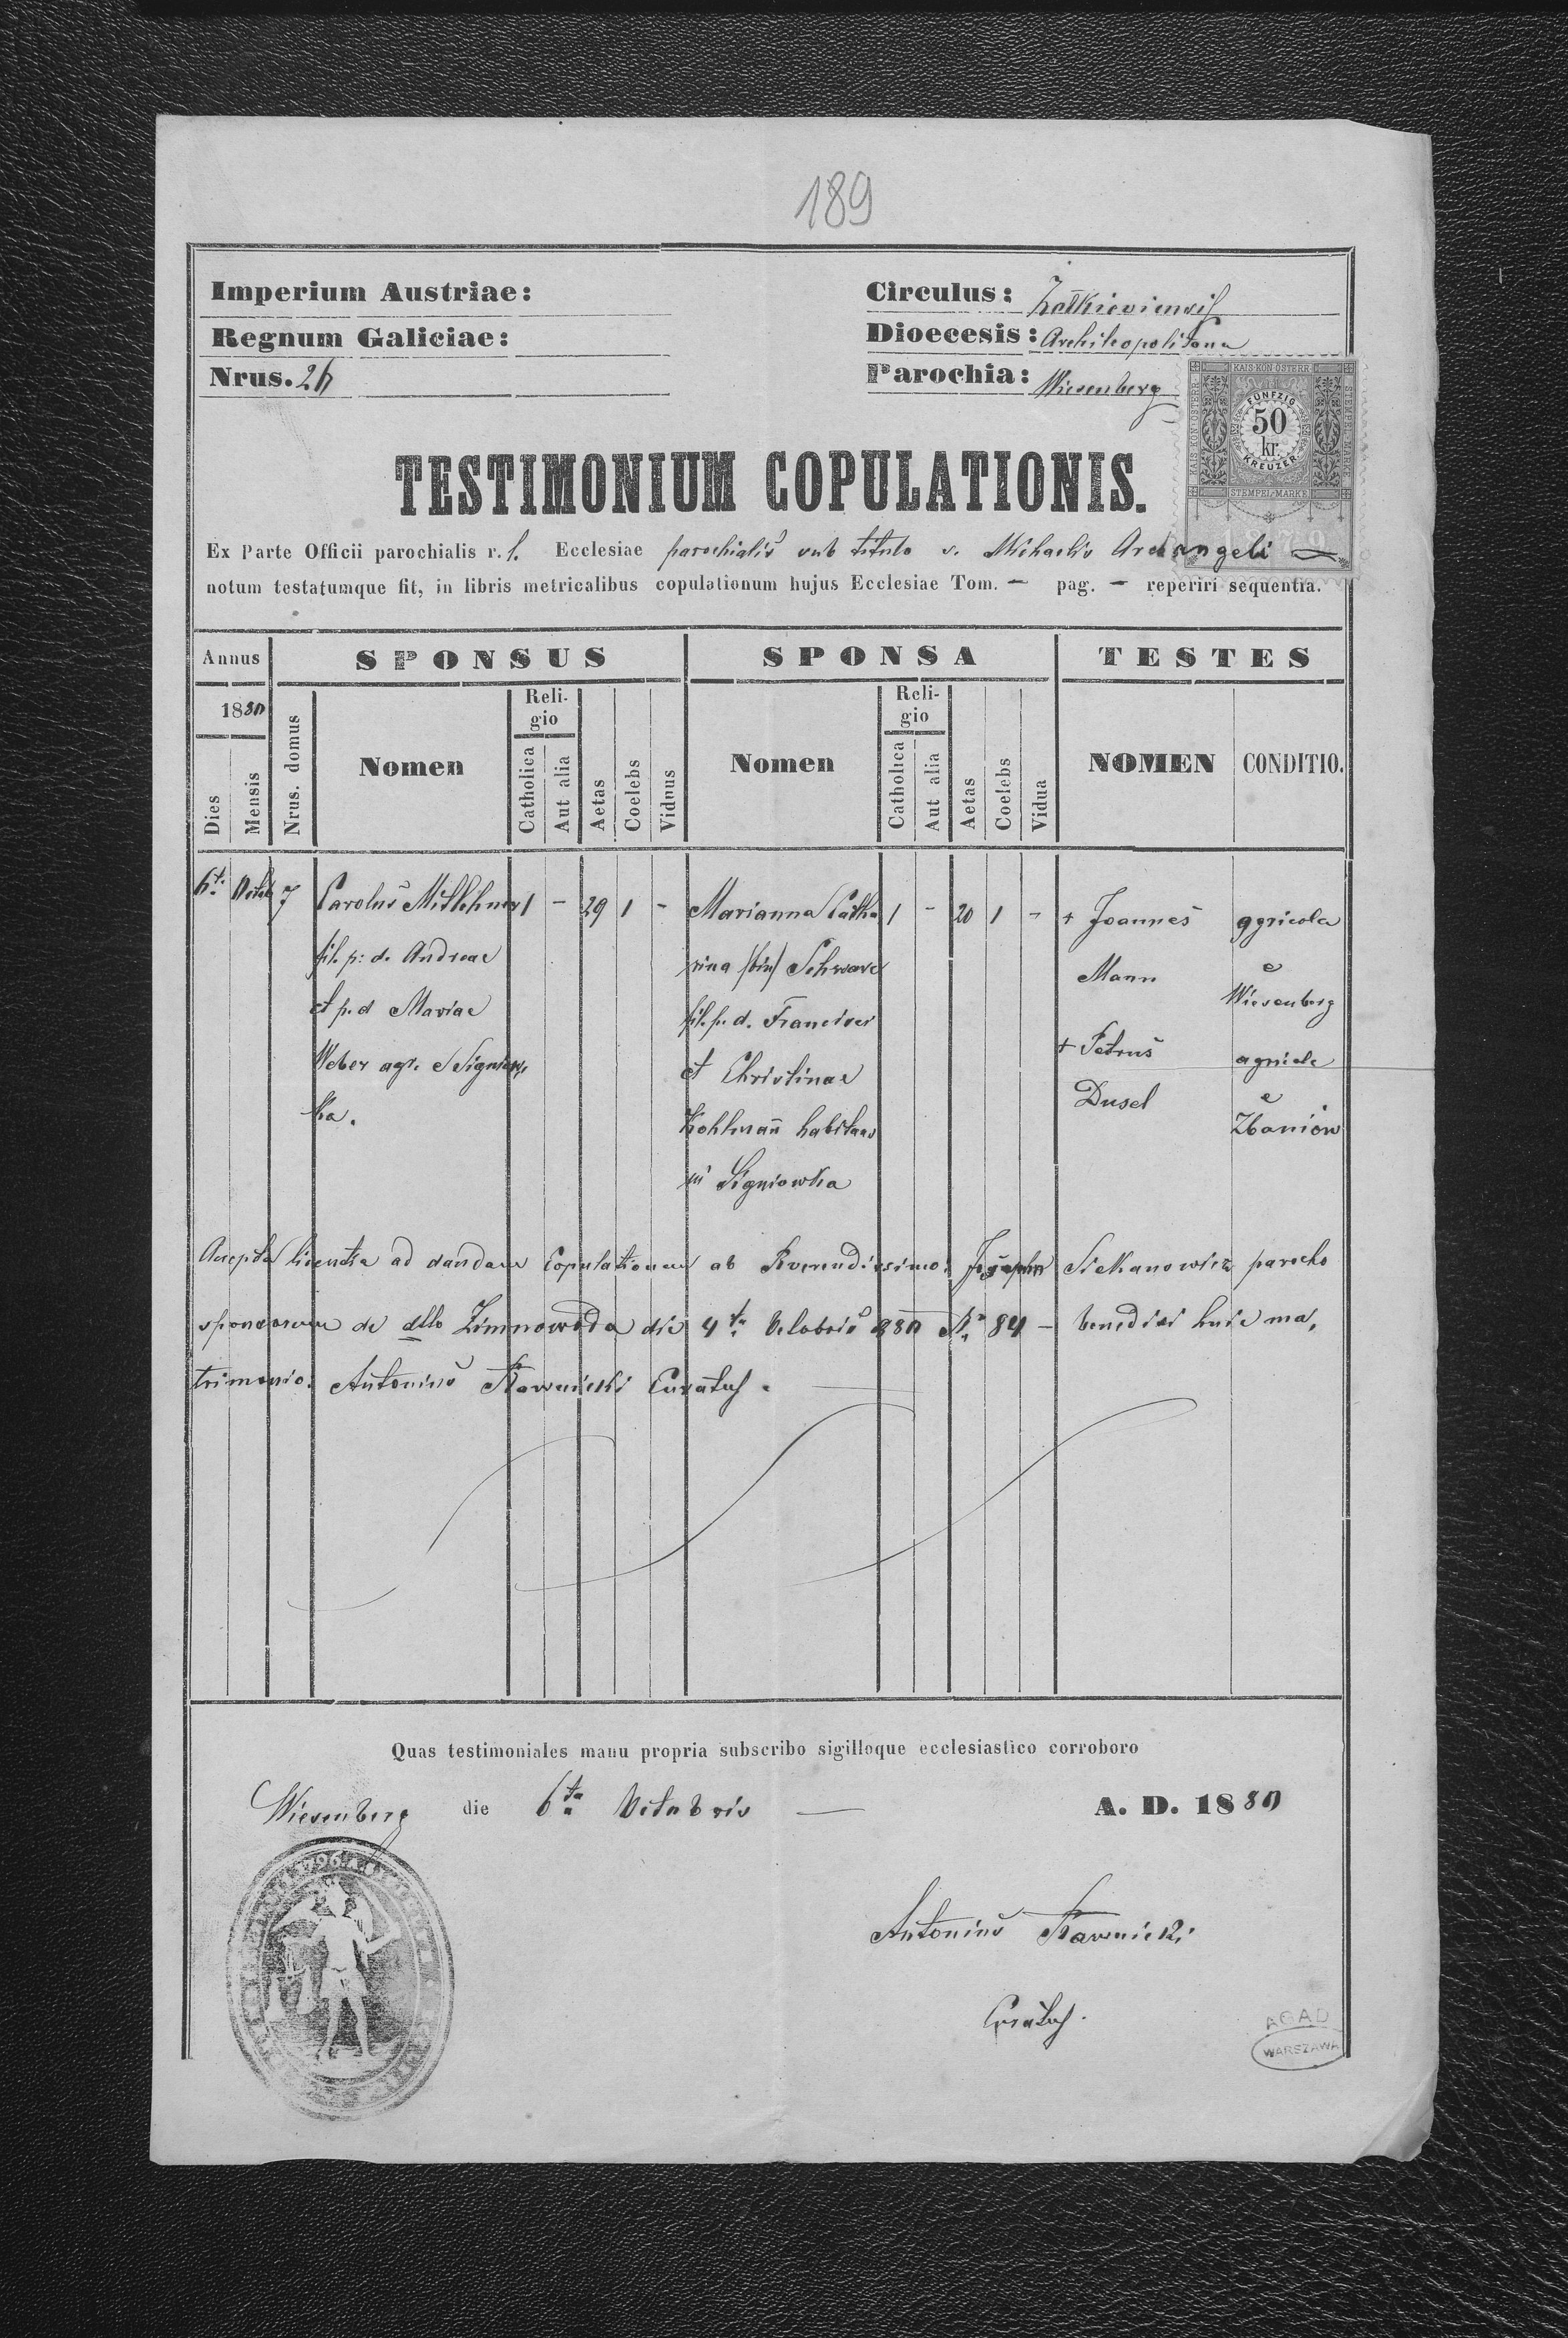 189
Imperium Austriae:
Regnum Galiciae:
Nrus. 26
Circulus: Żołkieviensis
Dioecesis: Archileopolitana
Parochia: Wiesenberg
KAIS. KÖN. ÖSTERR.
STEMPEL MARKE
FÜNFZIG
50
kr.
KREUZER
STEMPEL-MARKE
TESTIMONIUM COPULATIONIS.
Ex Parte Officii parochialis r. l. Ecclesiae parochialis sub titulo s. Michaelis Archangeli
notum testatumque fit, in libris metricalibus copulationum hujus Ecclesiae Tom. — pag. — reperiri sequentia.
Annus
1880
Dies
Mensis
Nrus. domus
SPONSUS
Nomen
Reli-
gio
Catholica
Aut alia
Aetas
Coelebs
Viduus
SPONSA
Nomen
Reli-
gio
Catholica
Aut alia
Aetas
Coelebs
Vidua
TESTES
NOMEN
CONDITIO.
6ta Octob 7
Carolus Mitlehner 1 - 29 1 -
fil. p: d. Andreae
et p. d Mariae
Weber agr. e Signiow,
ka.
Marianna Catha 1 - 20 1 -
rina (bin) Schwarc
fil. p. d. Francisci
et Christinae
Kohlmañ habitans
in Signiowka
+ Joannes agricola
Mann e
Wiesenberg
+ Petrus agricola
Dusel e
Zboniów
Accepta licentia ad dandam Copulationem ab Reverendissimo: Josepho Siekanowicz parocho
sponsorum de dtto Zimnowoda die 4ta Octobris 880 No 84 — benedixi huic ma,
trimonio. Antonius Curatus.
Quas testimoniales manu propria subscribo sigilloque ecclesiastico corroboro
Wiesenberg die 6ta Octobris — A. D. 1880
1796
Antonius
Curatus.
AGAD
WARSZAWA